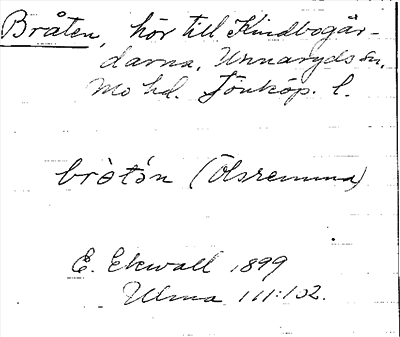 Bråten, hör till Kindbogår-
darna, Unnaryds sn,
Mo hd. Jönköp. l.
bròtə́n (Ölsremma)
E. Ekwall 1899
Ulma 111:102.